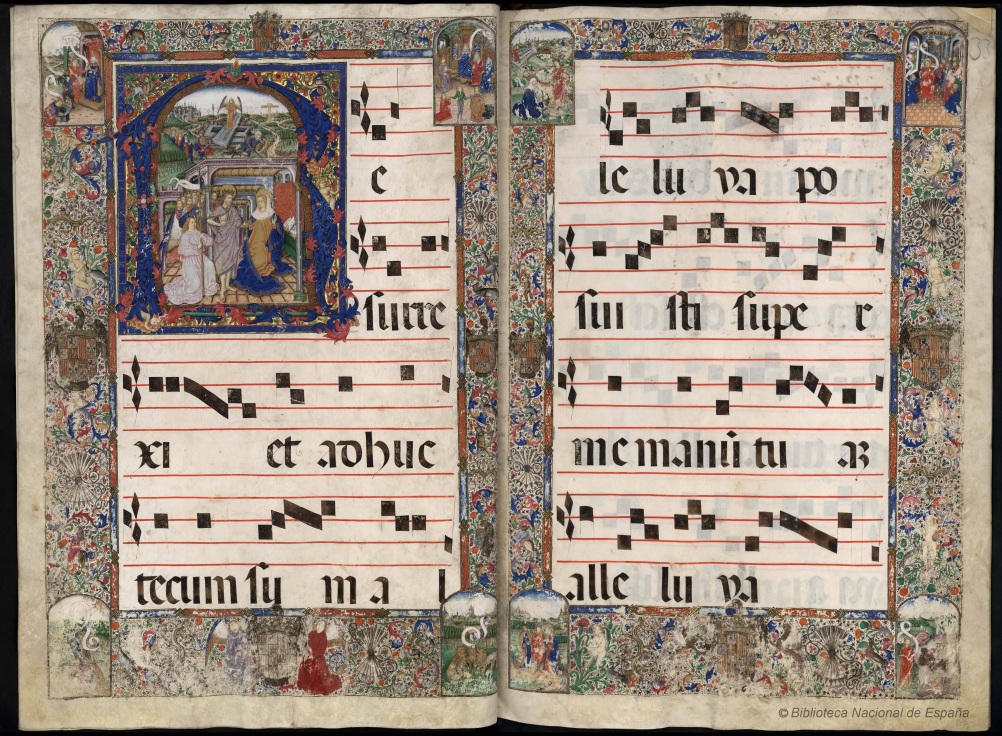 R
e
surre
xi et adhuc
tecum su m a l
le lu ya po
sui sti supe r
me manū tu az
alle lu ya
© Biblioteca Nacional de España